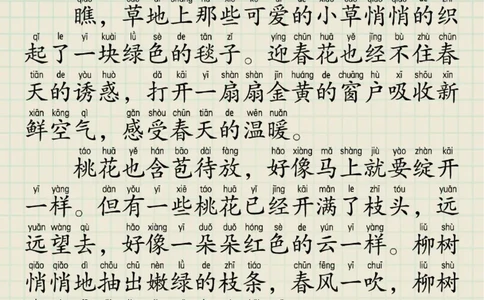 瞧，草地上那些可爱的小草悄悄的织
qǐ le yí kuài lǜ sè de tǎn zǐ yíng chūn huā yě jīng bú zhù chūn
起了一块绿色的毯子。迎春花也经不住春
tiān de yòu huò dǎ kāi yī shàn shàn jīn huáng de chuāng hù xī shōu xīn
天的诱惑，打开一扇扇金黄的窗户吸收新
xiān kōng qì gǎn shòu chūn tiān de wēn nuǎn
鲜空气，感受春天的温暖。
táo huā yě hán bāo dài fàng hǎo xiàng mǎ shàng jiù yào zhàn kāi
桃花也含苞待放，好像马上就要绽开
yī yàng dàn yǒu yī xiē táo huā yǐ jīng kāi mǎn le zhī tóu yuǎn
一样。但有一些桃花已经开满了枝头，远
yuǎn wàng qù hǎo xiàng yī duǒ duǒ hóng sè de yún yī yàng liǔ shù
远望去，好像一朵朵红色的云一样。柳树
qiāo qiāo dì chōu chū nèn lǜ de zhī tiáo chūn fēng yī chuī liǔ shù
悄悄地抽出嫩绿的枝条，春风一吹，柳树